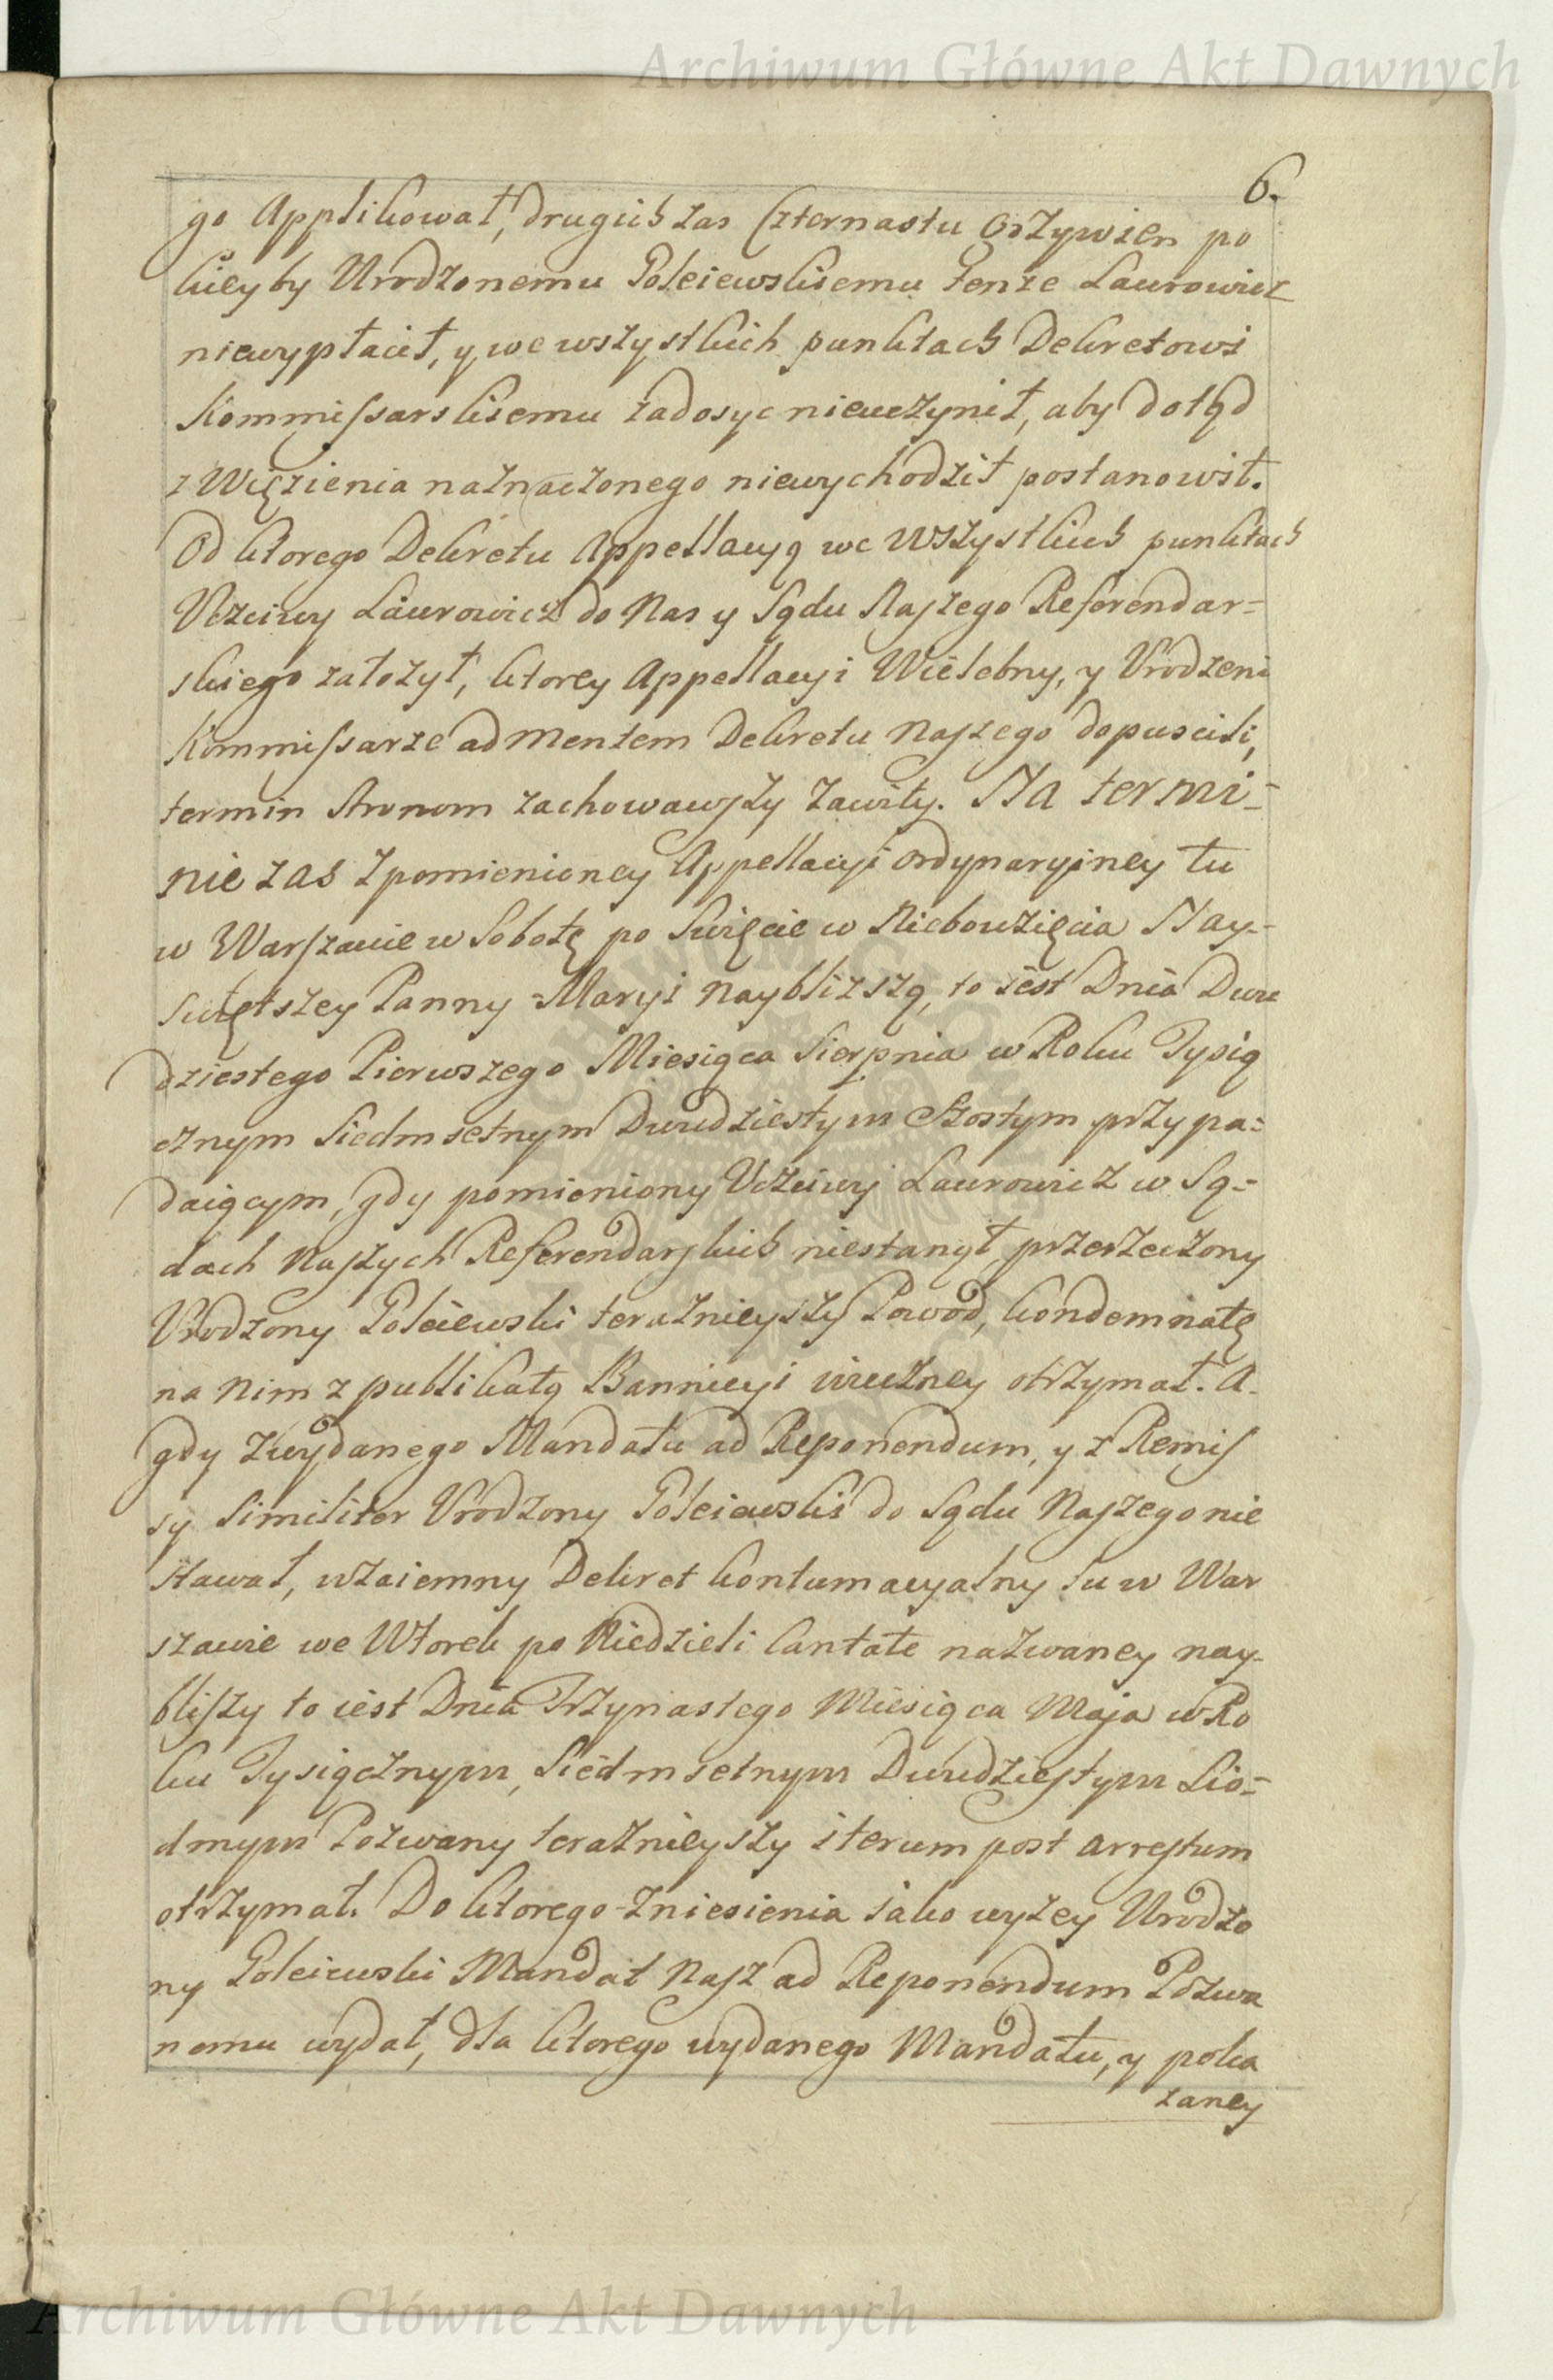 Archiwum Główne Akt Dawnych
6.
go Applikował, drugich zas Czternastu Grzywien po
kieyby Urodzonemu Poleiewskiemu tenze Laurowicz
niewypłacił, y we wszystkich punktach Dekretowi
Kommissarskiemu zadosyc nieuczynił, aby dotąd
z Więzienia naznaczonego niewychodził postanowił.
Od ktorego Dekretu Appellacyą we wszystkich punktach
Uczciwy Laurowicz do Nas y Sądu Naszego Referendar=
skiego założył, ktorey Appellacyi Wielebny, y Urodzeni
Kommissarze ad mentem Dekretu Naszego dopuscili,
termin Stronom zachowawszy Zawity. Na termi=
nie zas z pomienioney Appellacyi ordynaryiney tu
w Warszawie w Sobotę po Swięcie w Niebowzięcia Nay=
swiętszey Panny Maryi naybliższą, to iest Dnia Dwu
dziestego Pierwszego Miesiąca Sierpnia w Roku Tysią
cznym Siedmsetnym Dwudziestym Szostym przypa=
daiącym, gdy pomieniony Uczciwy Laurowicz w Są=
dach Naszych Referendarskich niestanął, przerzeczony
Urodzony Poleiewski teraznieyszy Powod, kondemnatę
na nim z publikatą Bannicyi wieczney otrzymał. A
gdy z wydanego Mandatu ad Reponendum, y z Remis
sy similiter Urodzony Poleiewski do Sądu Naszego nie
stawał, wzaiemny Dekret kontumacyalny tu w War
szawie we Wtorek po Niedzieli Cantate nazwaney nay-
bliszy to iest Dnia Trzynastego Miesiąca Maja w Ro
ku Tysiącznym, Siedmsetnym Dwudziestym Sio=
dmym Pozwany teraznieyszy iterum post arrestum
otrzymał. Do ktorego zniesienia iako wyzey Urodzo
ny Poleiewski Mandat Nasz ad Reponendum Pozwa
nemu wydał, dla ktorego wydanego Mandatu, y poka
zaney
Archiwum Główne Akt Dawnych